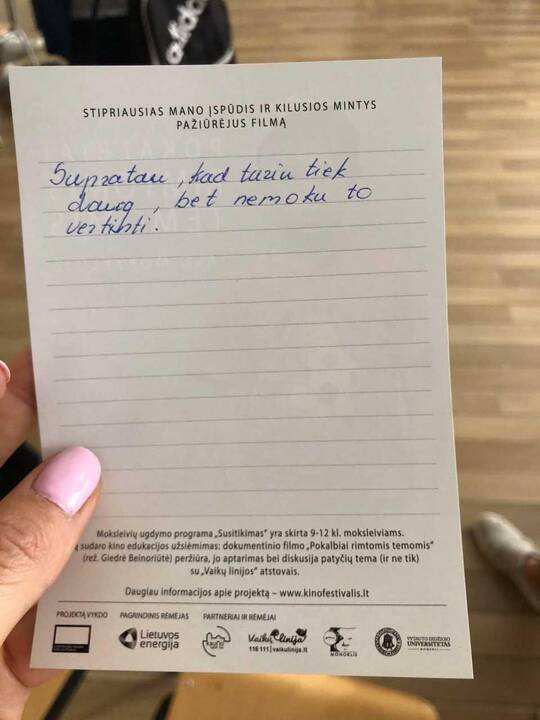 adidas
STIPRIAUSIAS MANO ĮSPŪDIS IR KILUSIOS MINTYS
PAŽIŪRĖJUS FILMĄ
Supratau, kad turiu tiek
daug, bet nemoku to
vertinti.
Moksleivių ugdymo programa „Susitikimas" yra skirta 9-12 kl. moksleiviams.
sudaro kino edukacijos užsiėmimas: dokumentinio filmo „Pokalbiai rimtomis temomis"
(rež. Giedrė Beinoriūtė) peržiūra, jo aptarimas bei diskusija patyčių tema (ir ne tik)
su „Vaikų linijos" atstovais.
Daugiau informacijos apie projektą – www.kinofestivalis.lt
PROJEKTĄ VYKDO PAGRINDINIS RĖMĖJAS PARTNERIAI IR RĖMĖJAI
Lietuvos
energija
Vaikų linija
116 111 | vaikulinija.lt
MONOKLIS
VYTAUTO DIDŽIOJO
UNIVERSITETAS